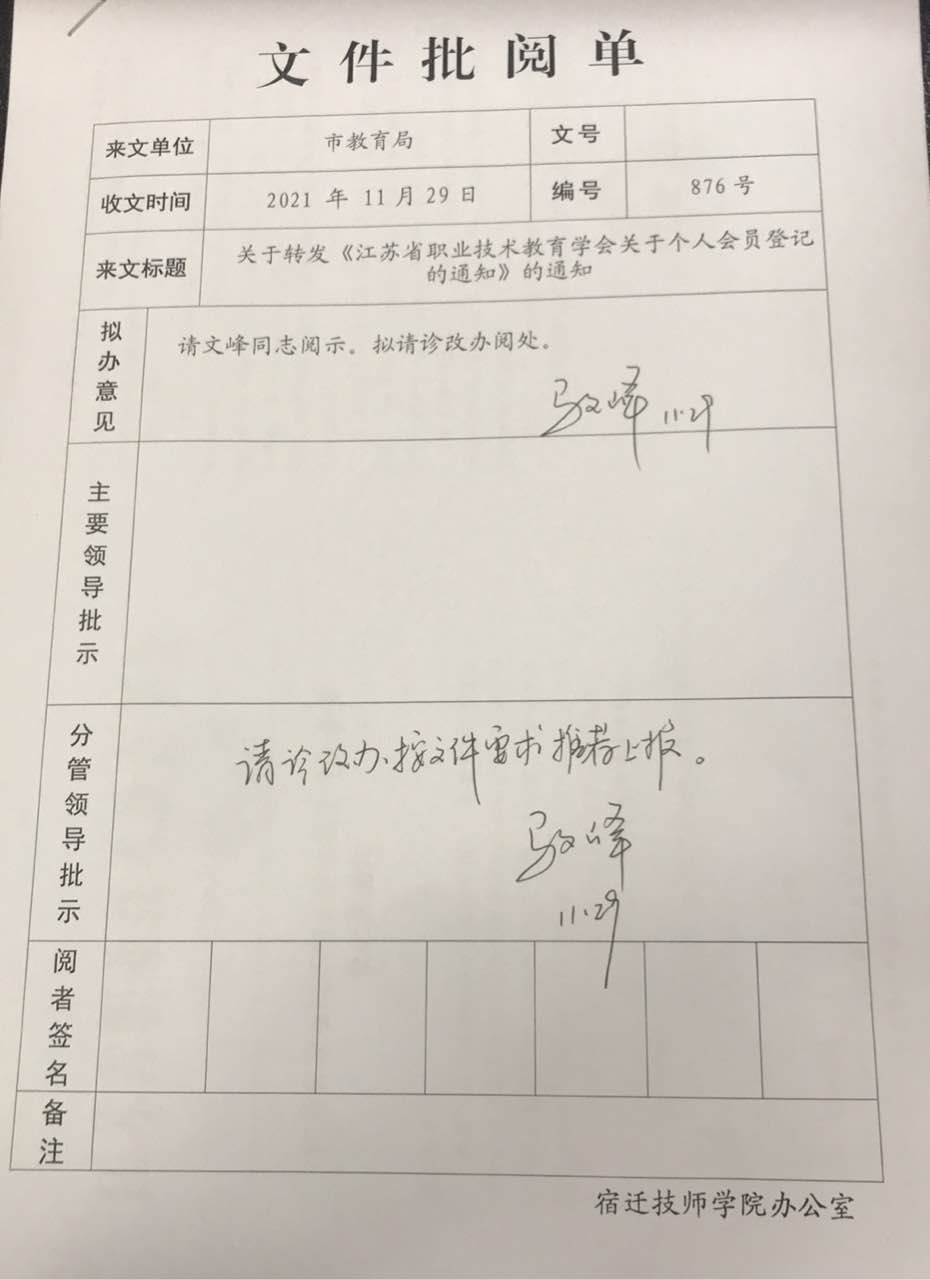 文件批阅单
来文单位 市教育局 文号
收文时间 2021 年 11 月 29 日 编号 876 号
来文标题 关于转发《江苏省职业技术教育学会关于个人会员登记
的通知》的通知
拟办意见 请文峰同志阅示。拟请诊改办阅处。
文峰 11.29
主要领导批示
分管领导批示 请诊改办按文件要求推荐上报。
文峰
11.29
阅者签名
备注
宿迁技师学院办公室